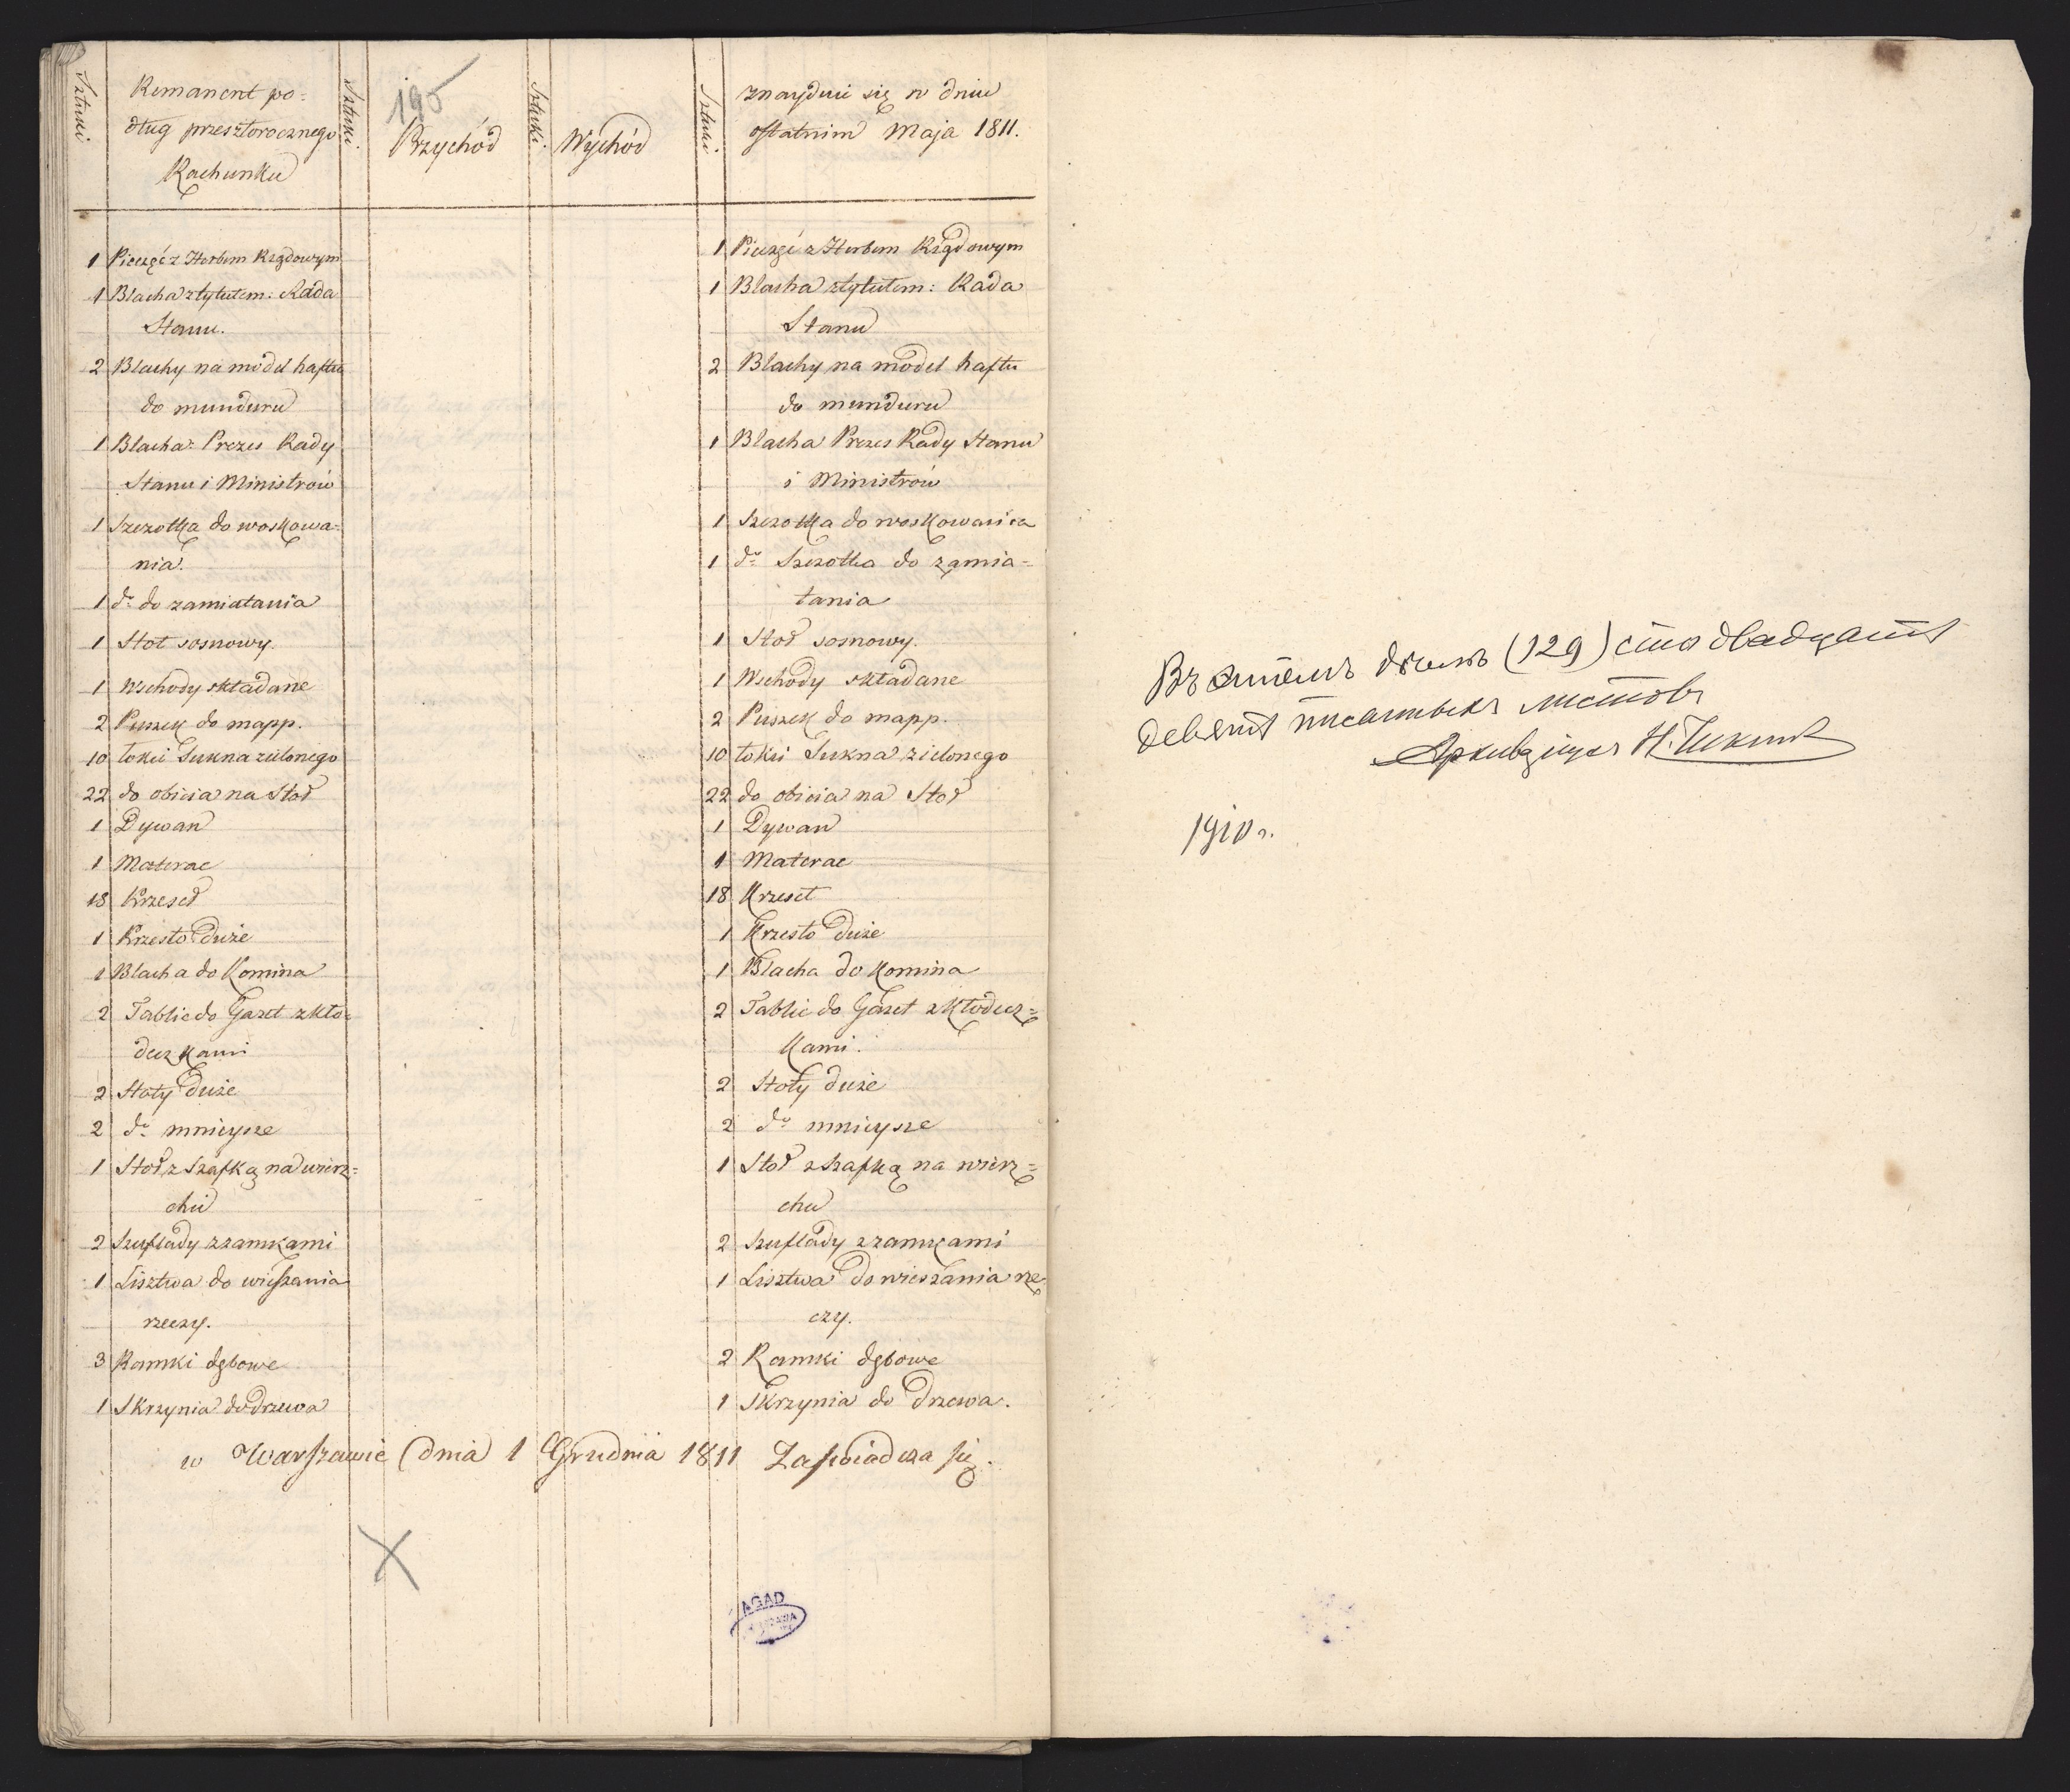 195
Sztuki
Remanent po=
dług przeszłorocznego
Rachunku
Sztuki.
Przychód
Sztuki.
Wychód
Sztuki.
znayduie się w dniu
ostatnim Maja 1811.
1 Pieczęć z Herbem Rządowym
1 Blacha z tytułem: Rada
Stanu.
2 Blachy na model haftu
do munduru
1 Blacha: Prezes Rady
Stanu i Ministrów
1 Szczotka do woskowa=
nia.
1 do do zamiatania
1 Stoł sosnowy.
1 Wschody składane
2 Puszek do mapp.
10 łokci Sukna zielonego
22 do obicia na Stoł
1 Dywan
1 Materac
18 Krzeseł
1 Krzesło Duże
1 Blacha do Komina
2 Tablic do Gazet z kło=
deczkami
2 Stoły Duże
2 do mnieysze
1 Stoł z Szafką na wierz=
chu
2 Szuflady z zamkami
1 Lisztwa do wieszania
rzeczy.
3 Ramki dębowe
1 Skrzynia do drzewa
1 Pieczęć z Herbem Rządowym
1 Blacha z tytułem: Rada
Stanu
2 Blachy na model haftu
do munduru
1 Blacha Prezes Rady Stanu
i Ministrów
1 Szczotka do woskowania
1 do Szczotka do zamia=
tania
1 Stoł sosnowy.
1 Wschody składane
2 Puszek do mapp.
10 łokci Sukna zielonego
22 do obicia na Stoł
1 Dywan
1 Materac
18 Krzeseł
1 Krzesło Duże
1 Blacha do Komina
2 Tablic do Gazet z Kłodecz=
kami.
2 Stoły duże
2 do mnieysze
1 Stoł z szafką na wierz=
chu
2 Szuflady z zamkami
1 Lisztwa do wieszania rze
czy.
2 Ramki dębowe
1 Skrzynia do Drzewa.
w Warszawie dnia 1 Grudnia 1811 Zaświadcza się.
AGAD
Въ этомъ дѣлѣ (129) сто двадцать
девять писанныхъ листовъ
Архиваріусъ Н.
1910 г.